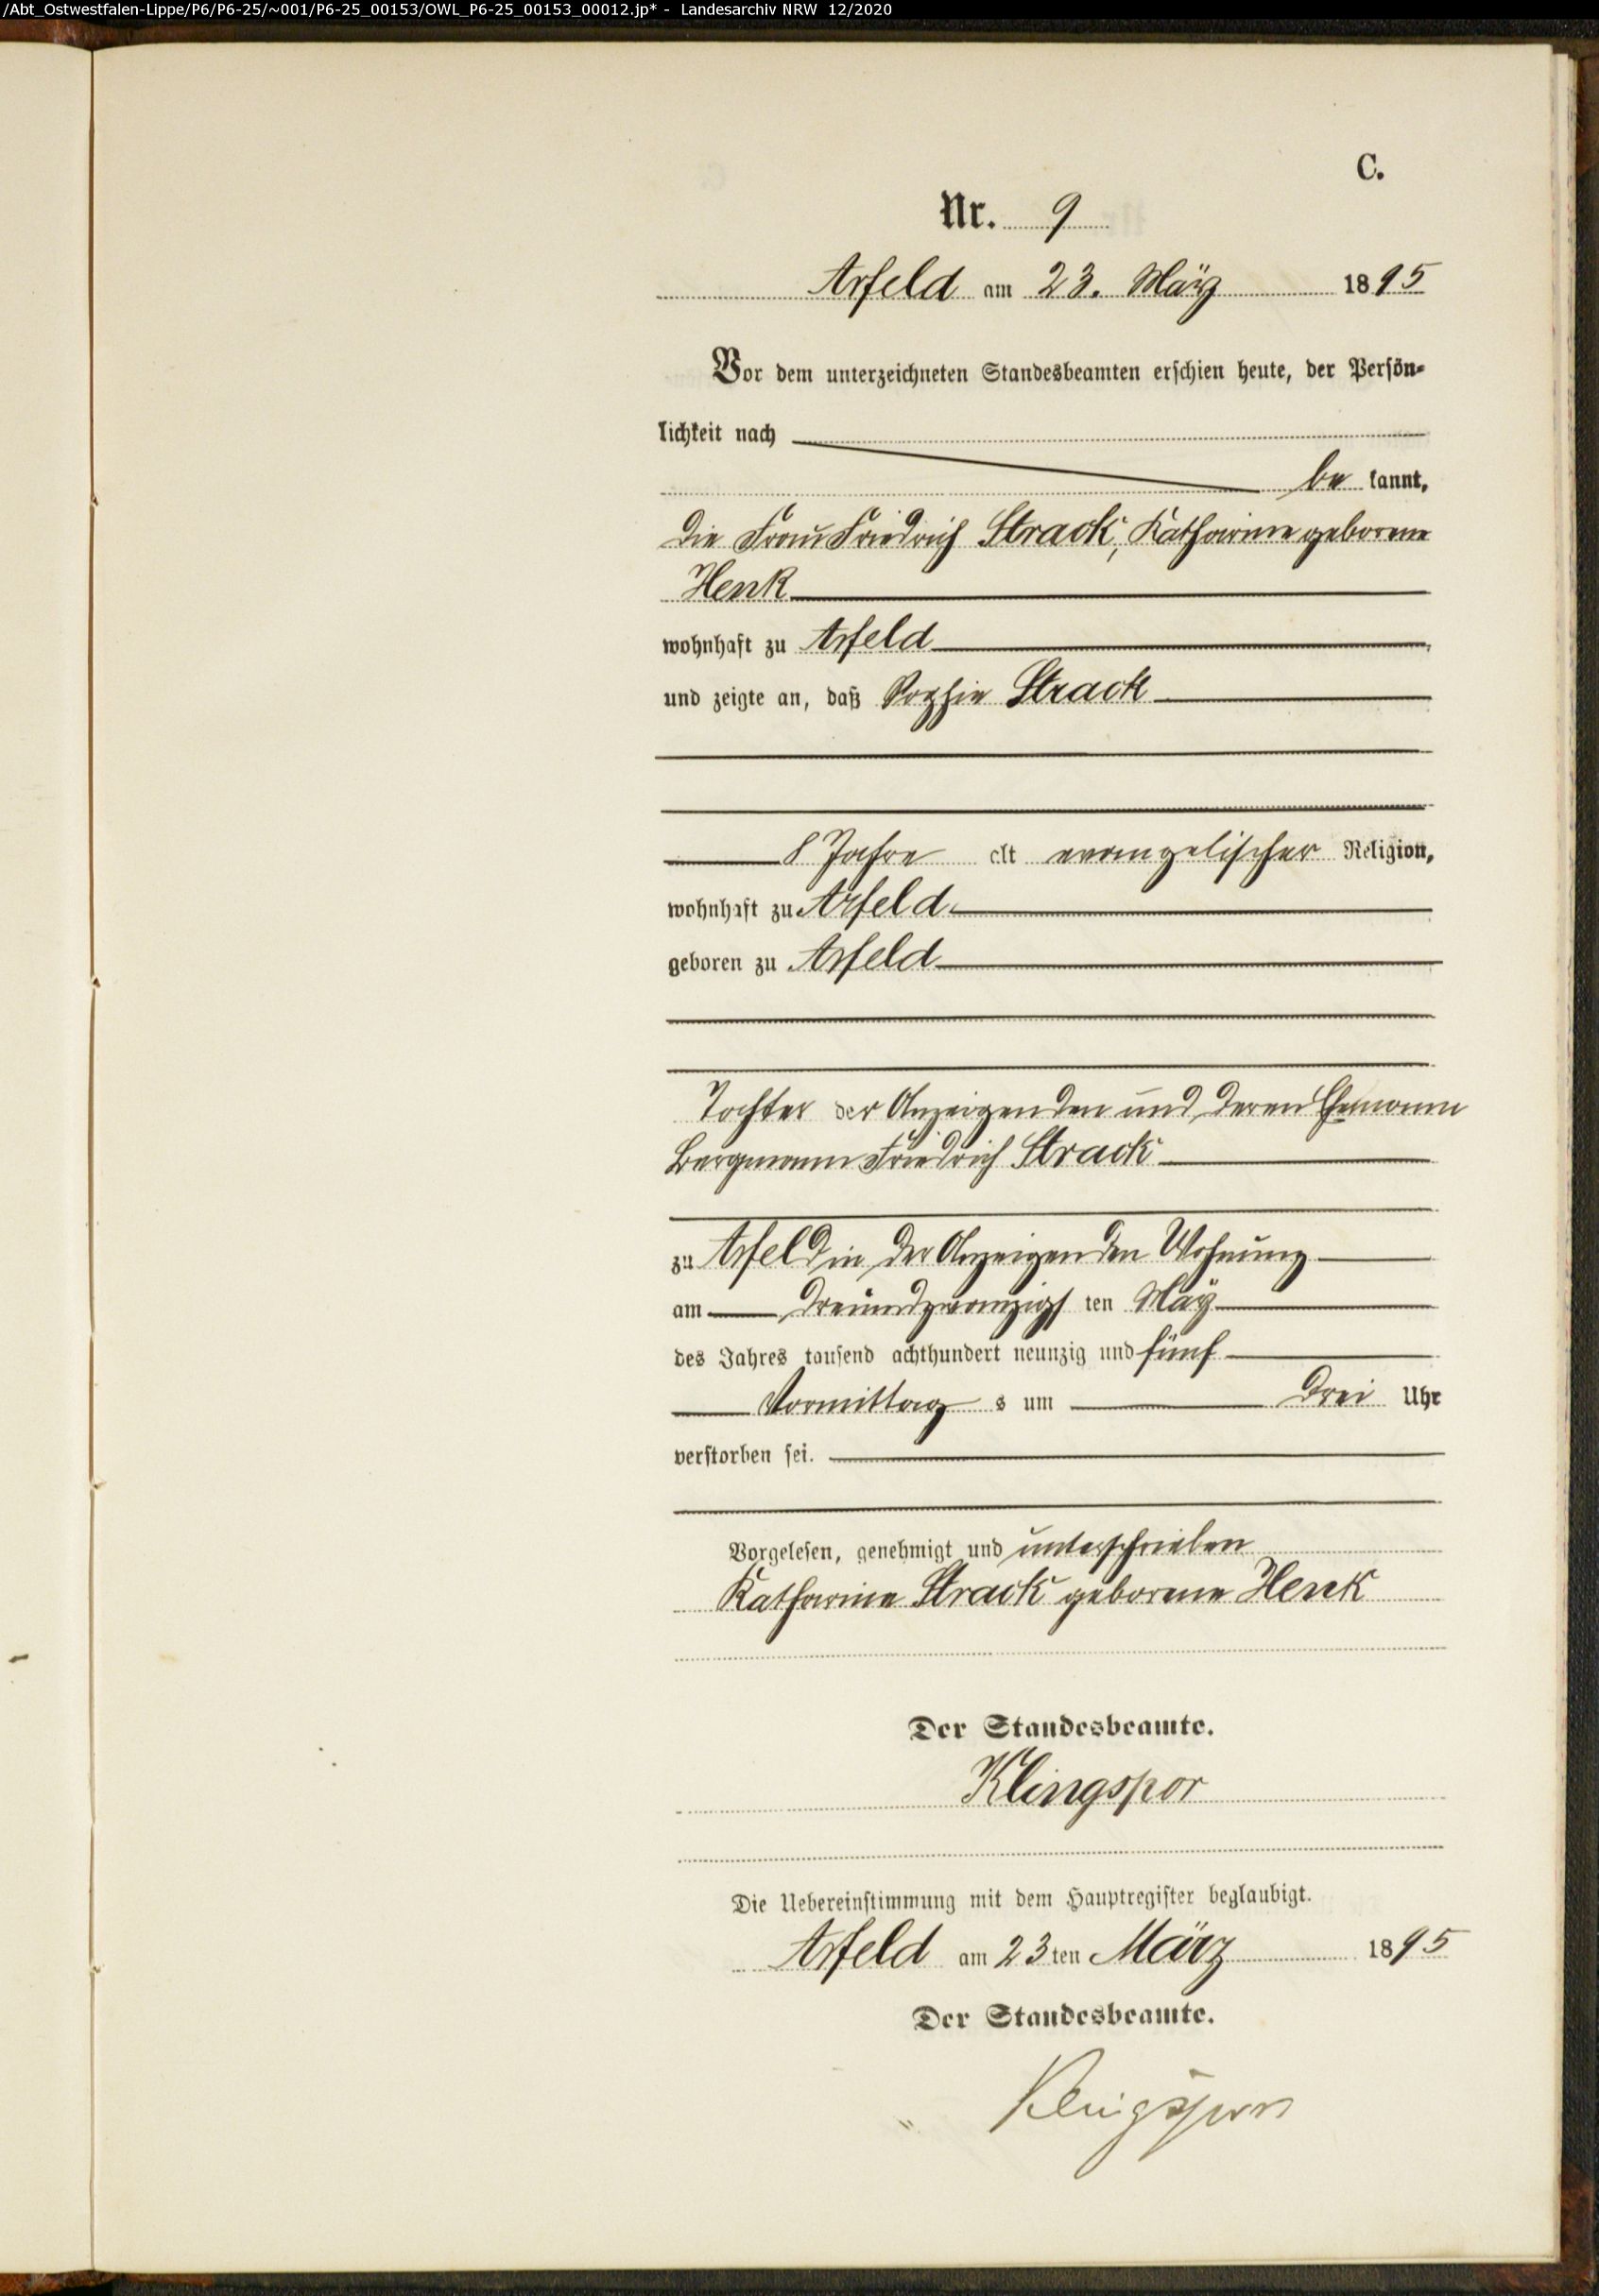 /Abt_Ostwestfalen-Lippe/P6/P6-25/~001/P6-25_00153/OWL_P6-25_00153_00012.jp* - Landesarchiv NRW 12/2020
C.
Nr. 9
Arfeld am 23. März 1895
Vor dem unterzeichneten Standesbeamten erschien heute, der Persön-
lichkeit nach
be kannt,
die Frau Friedrich Strack, Katharine geborene
Henk
wohnhaft zu Arfeld
und zeigte an, daß Sophie Strack
8 Jahre alt evangelischer Religion,
wohnhaft zu Arfeld
geboren zu Arfeld
Tochter der Anzeigenden und deren Ehemann
Bergmann Friedrich Strack
zu Arfeld in der Anzeigenden Wohnung
am dreiundzwanzigs ten März
des Jahres tausend achthundert neunzig und fünf
Vormittag s um drei Uhr
verstorben sei.
Vorgelesen, genehmigt und unterschrieben
Katharine Strack geborene Henk
Der Standesbeamte.
Klingspor
Die Uebereinstimmung mit dem Hauptregister beglaubigt.
Arfeld am 23 ten März 1895
Der Standesbeamte.
Klingspor